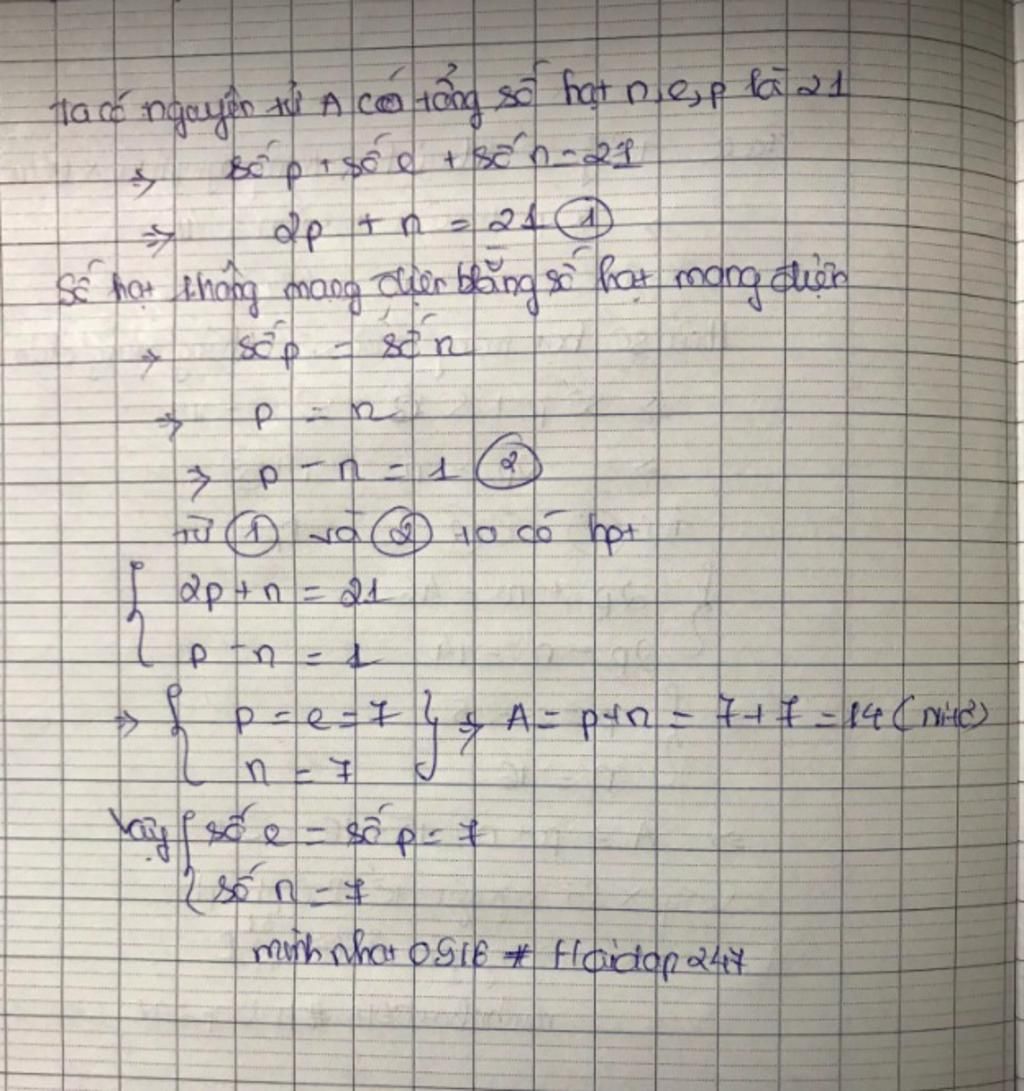 Ta có nguyên tử A có tổng số hạt n, e, p là 21
⇒ số p + số e + số n = 21
⇒ 2p + n = 21 ①
Số hạt không mang điện bằng số hạt mang điện
⇒ số p = số n
⇒ p = n
⇒ p - n = 1 ②
từ ① và ② ta có hpt
{ 2p + n = 21
p - n = 1
⇒ { p = e = 7 } ⇒ A = p + n = 7 + 7 = 14 (nitơ)
n = 7
Vậy { số e = số p = 7
số n = 7
minhnhat0916 # Hoidap247